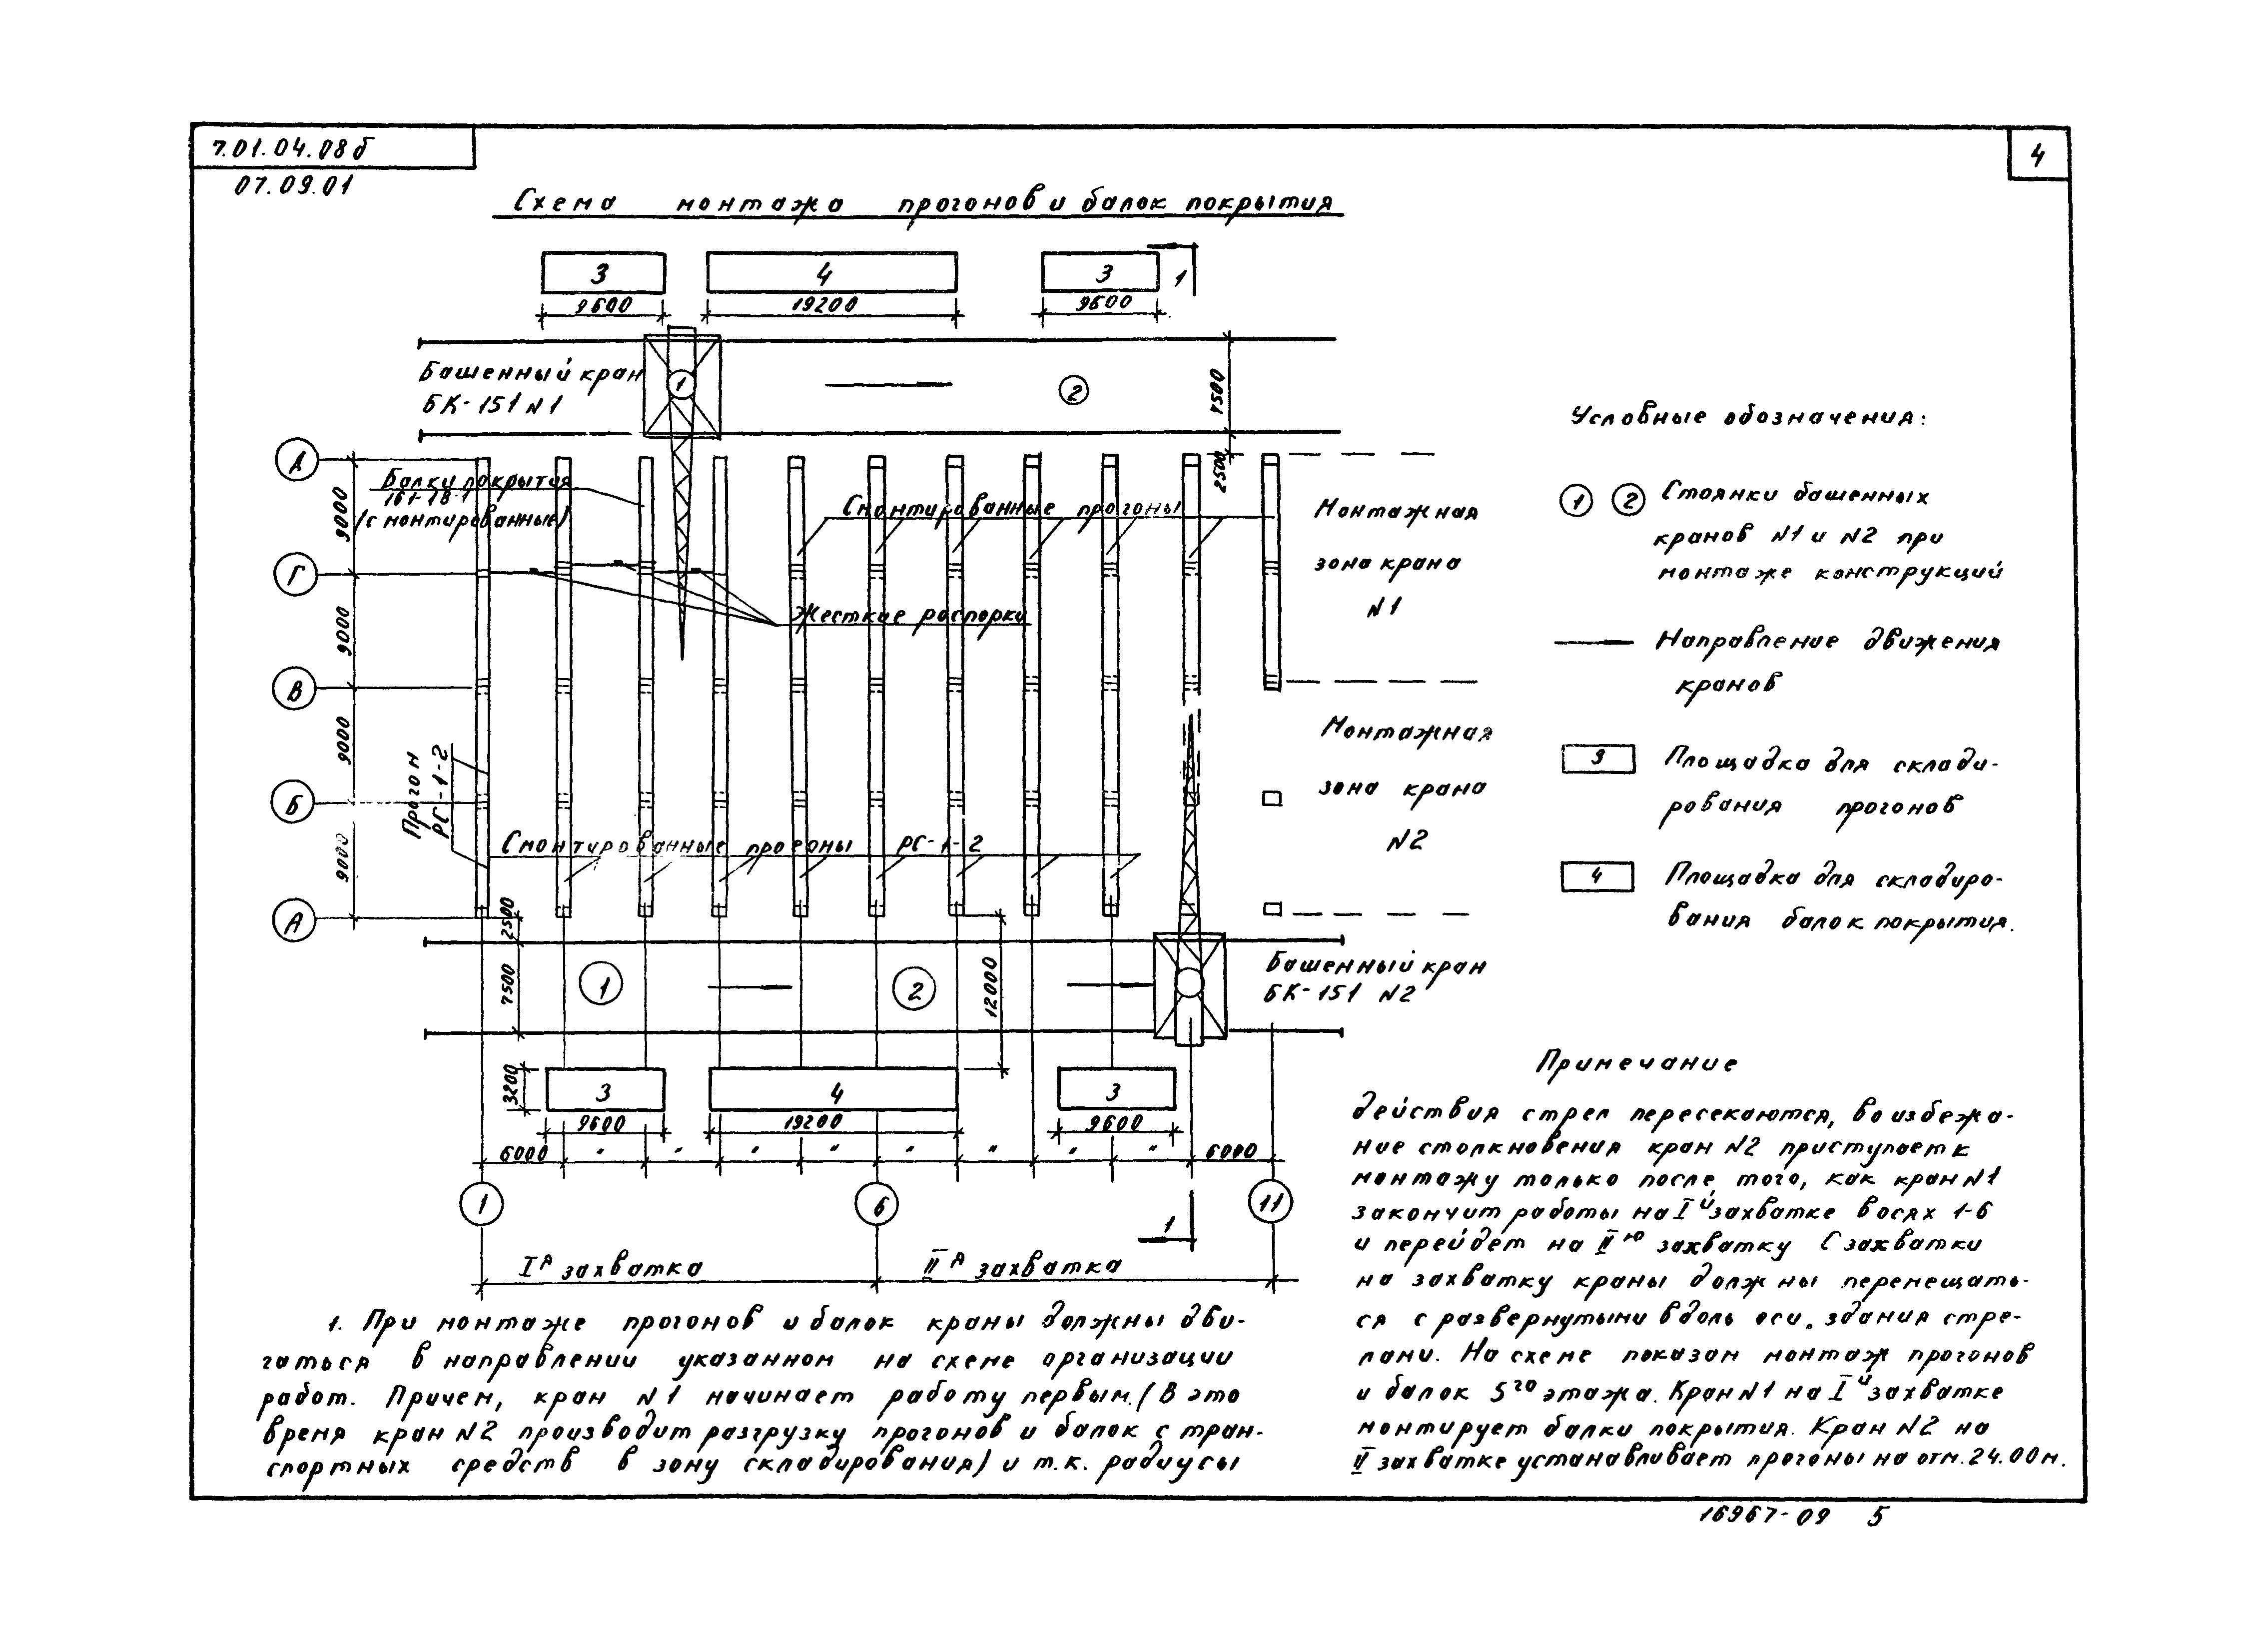 7.01.04.08б
07.09.01
4
Схема монтажа прогонов и балок покрытия
3
4
3
1
9600
19200
9600
Башенный кран
БК-151 N1
1
2
7500
2500
Д
Г
В
Б
А
9000
9000
9000
9000
Балки покрытия
(смонтированные)
Смонтированные прогоны
Жесткие распорки
Прогон
РС-1-2
Смонтированные прогоны РС-1-2
Монтажная
зона крана
N1
Монтажная
зона крана
N2
2500
7500
1
2
12000
Башенный кран
БК-151 N2
3200
3
4
3
9600
19200
9600
6000 " " " " " " " " 6000
1
6
11
1
Iя захватка
IIя захватка
Условные обозначения:
1 2 Стоянки башенных
кранов N1 и N2 при
монтаже конструкций
Направление движения
кранов
3 Площадка для склади-
рования прогонов
4 Площадка для складиро-
вания балок покрытия.
1. При монтаже прогонов и балок краны должны дви-
гаться в направлении указанном на схеме организации
работ. Причем, кран N1 начинает работу первым. (В это
время кран N2 производит разгрузку прогонов и балок с тран-
спортных средств в зону складирования) и т.к. радиусы
Примечание
действия стрел пересекаются, во избежа-
ние столкновения кран N2 приступает к
монтажу только после того, как кран N1
закончит работы на Iй захватке в осях 1-6
и перейдет на IIю захватку С захватки
на захватку краны должны перемещать-
ся с развернутыми вдоль оси. здания стре-
лами. На схеме показан монтаж прогонов
и балок 5го этажа. Кран N1 на Iй захватке
монтирует балки покрытия. Кран N2 на
II захватке устанавливает прогоны на отм. 24.00м.
16967-09 5